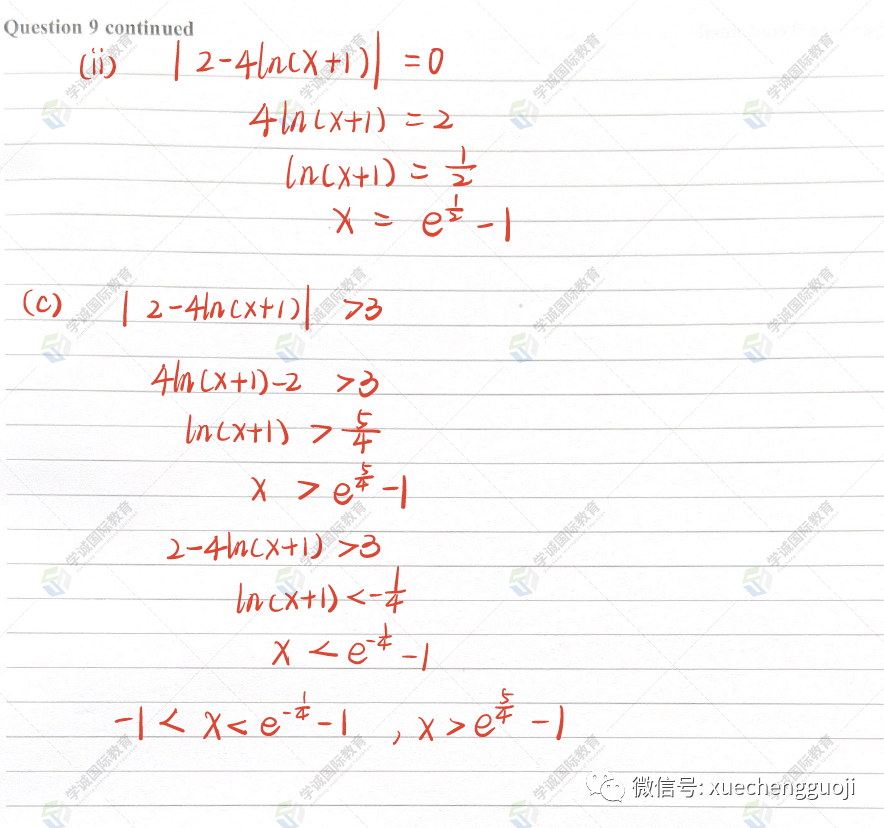 Question 9 continued
(ii) |2-4ln(x+1)| =0
4ln(x+1) = 2
ln(x+1) = 1/2
x = e^{1/2} -1
(c) |2-4ln(x+1)| >3
4ln(x+1)-2 >3
ln(x+1) > 5/4
x > e^{5/4} -1
2-4ln(x+1) >3
ln(x+1) < -1/4
x < e^{-1/4} -1
-1 < x < e^{-1/4} -1 , x > e^{5/4} -1
学诚国际教育
微信号: xuechengguoji